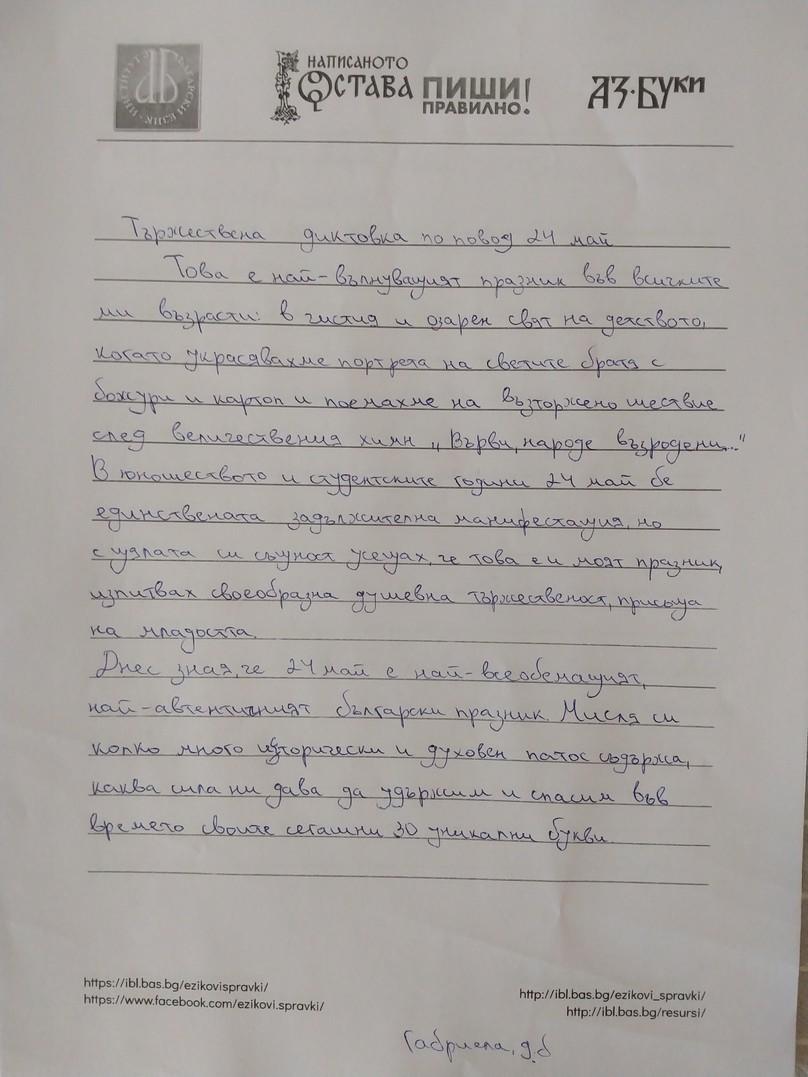 ИНСТИТУТ ЗА БЪЛГАРСКИ ЕЗИК
НАПИСАНОТО
ОСТАВА ПИШИ
ПРАВИЛНО!
АЗ·БУКИ
Тържествена диктовка по повод 24 май
Това е най-вълнуващият празник във всичките
ми възрасти: в чистия и озарен свят на детството,
когато украсявахме портрета на светите братя с
божури и картоп и поемахме на възторжено шествие
след величествения химн „Върви, народе възродени..."
В юношеството и студентските години 24 май бе
единствената задължителна манифестация, но
с цялата си същност усещах, че това е и моят празник,
изпитвах своеобразна душевна тържественост, присъща
на младостта.
Днес зная, че 24 май е най-всеобемащият,
най-автентичният български празник. Мисля си
колко много исторически и духовен патос съдържа,
каква сила ни дава да удържим и спасим във
времето своите сегашни 30 уникални букви
https://ibl.bas.bg/ezikovispravki/
https://www.facebook.com/ezikovi.spravki/
http://ibl.bas.bg/ezikovi_spravki/
http://ibl.bas.bg/resursi/
Габриела, 9.б